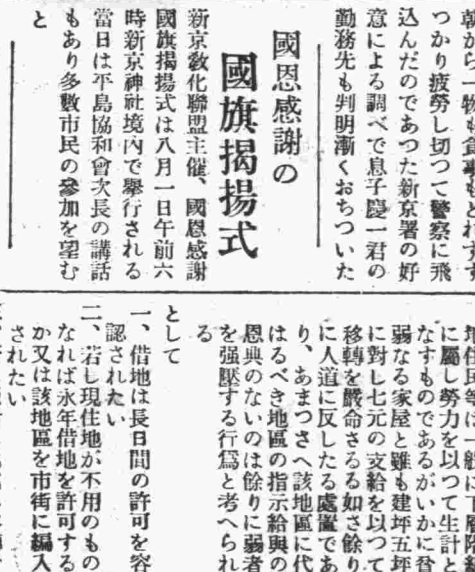 つかり疲勞し切つて警察に飛
込んだのであつた新京署の好
意による調べで息子慶一君の
勤務先も判明漸くおちついた
國恩感謝の
國旗揭揚式
新京敎化聯盟主催、國恩感謝
國旗揭揚式は八月一日午前六
時新京神社境內で擧行される
當日は平島協和會次長の講話
もあり多數市民の參加を望む
と
に屬し勞力を以つて生計と
なすものであるがいかに貧
弱なる家屋と雖も建坪五坪
に對し七元の支給を以つて
移轉を嚴命さるる如き餘り
に人道に反したる處置であ
り、あまつさへ該地區に代
はるべき地區の指示給與の
恩典のないのは餘りに弱者
を强壓する行爲と考へられ
る
として
一、借地は長日間の許可を容
認されたい
二、若し現住地が不用のもの
なれば永年借地を許可する
か又は該地區を市街に編入
されたい